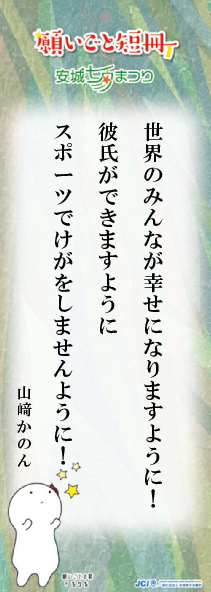 願いごと短冊
安城七夕まつり
世界のみんなが幸せになりますように！
彼氏ができますように
スポーツでけがをしませんように！
山﨑かのん
JCI